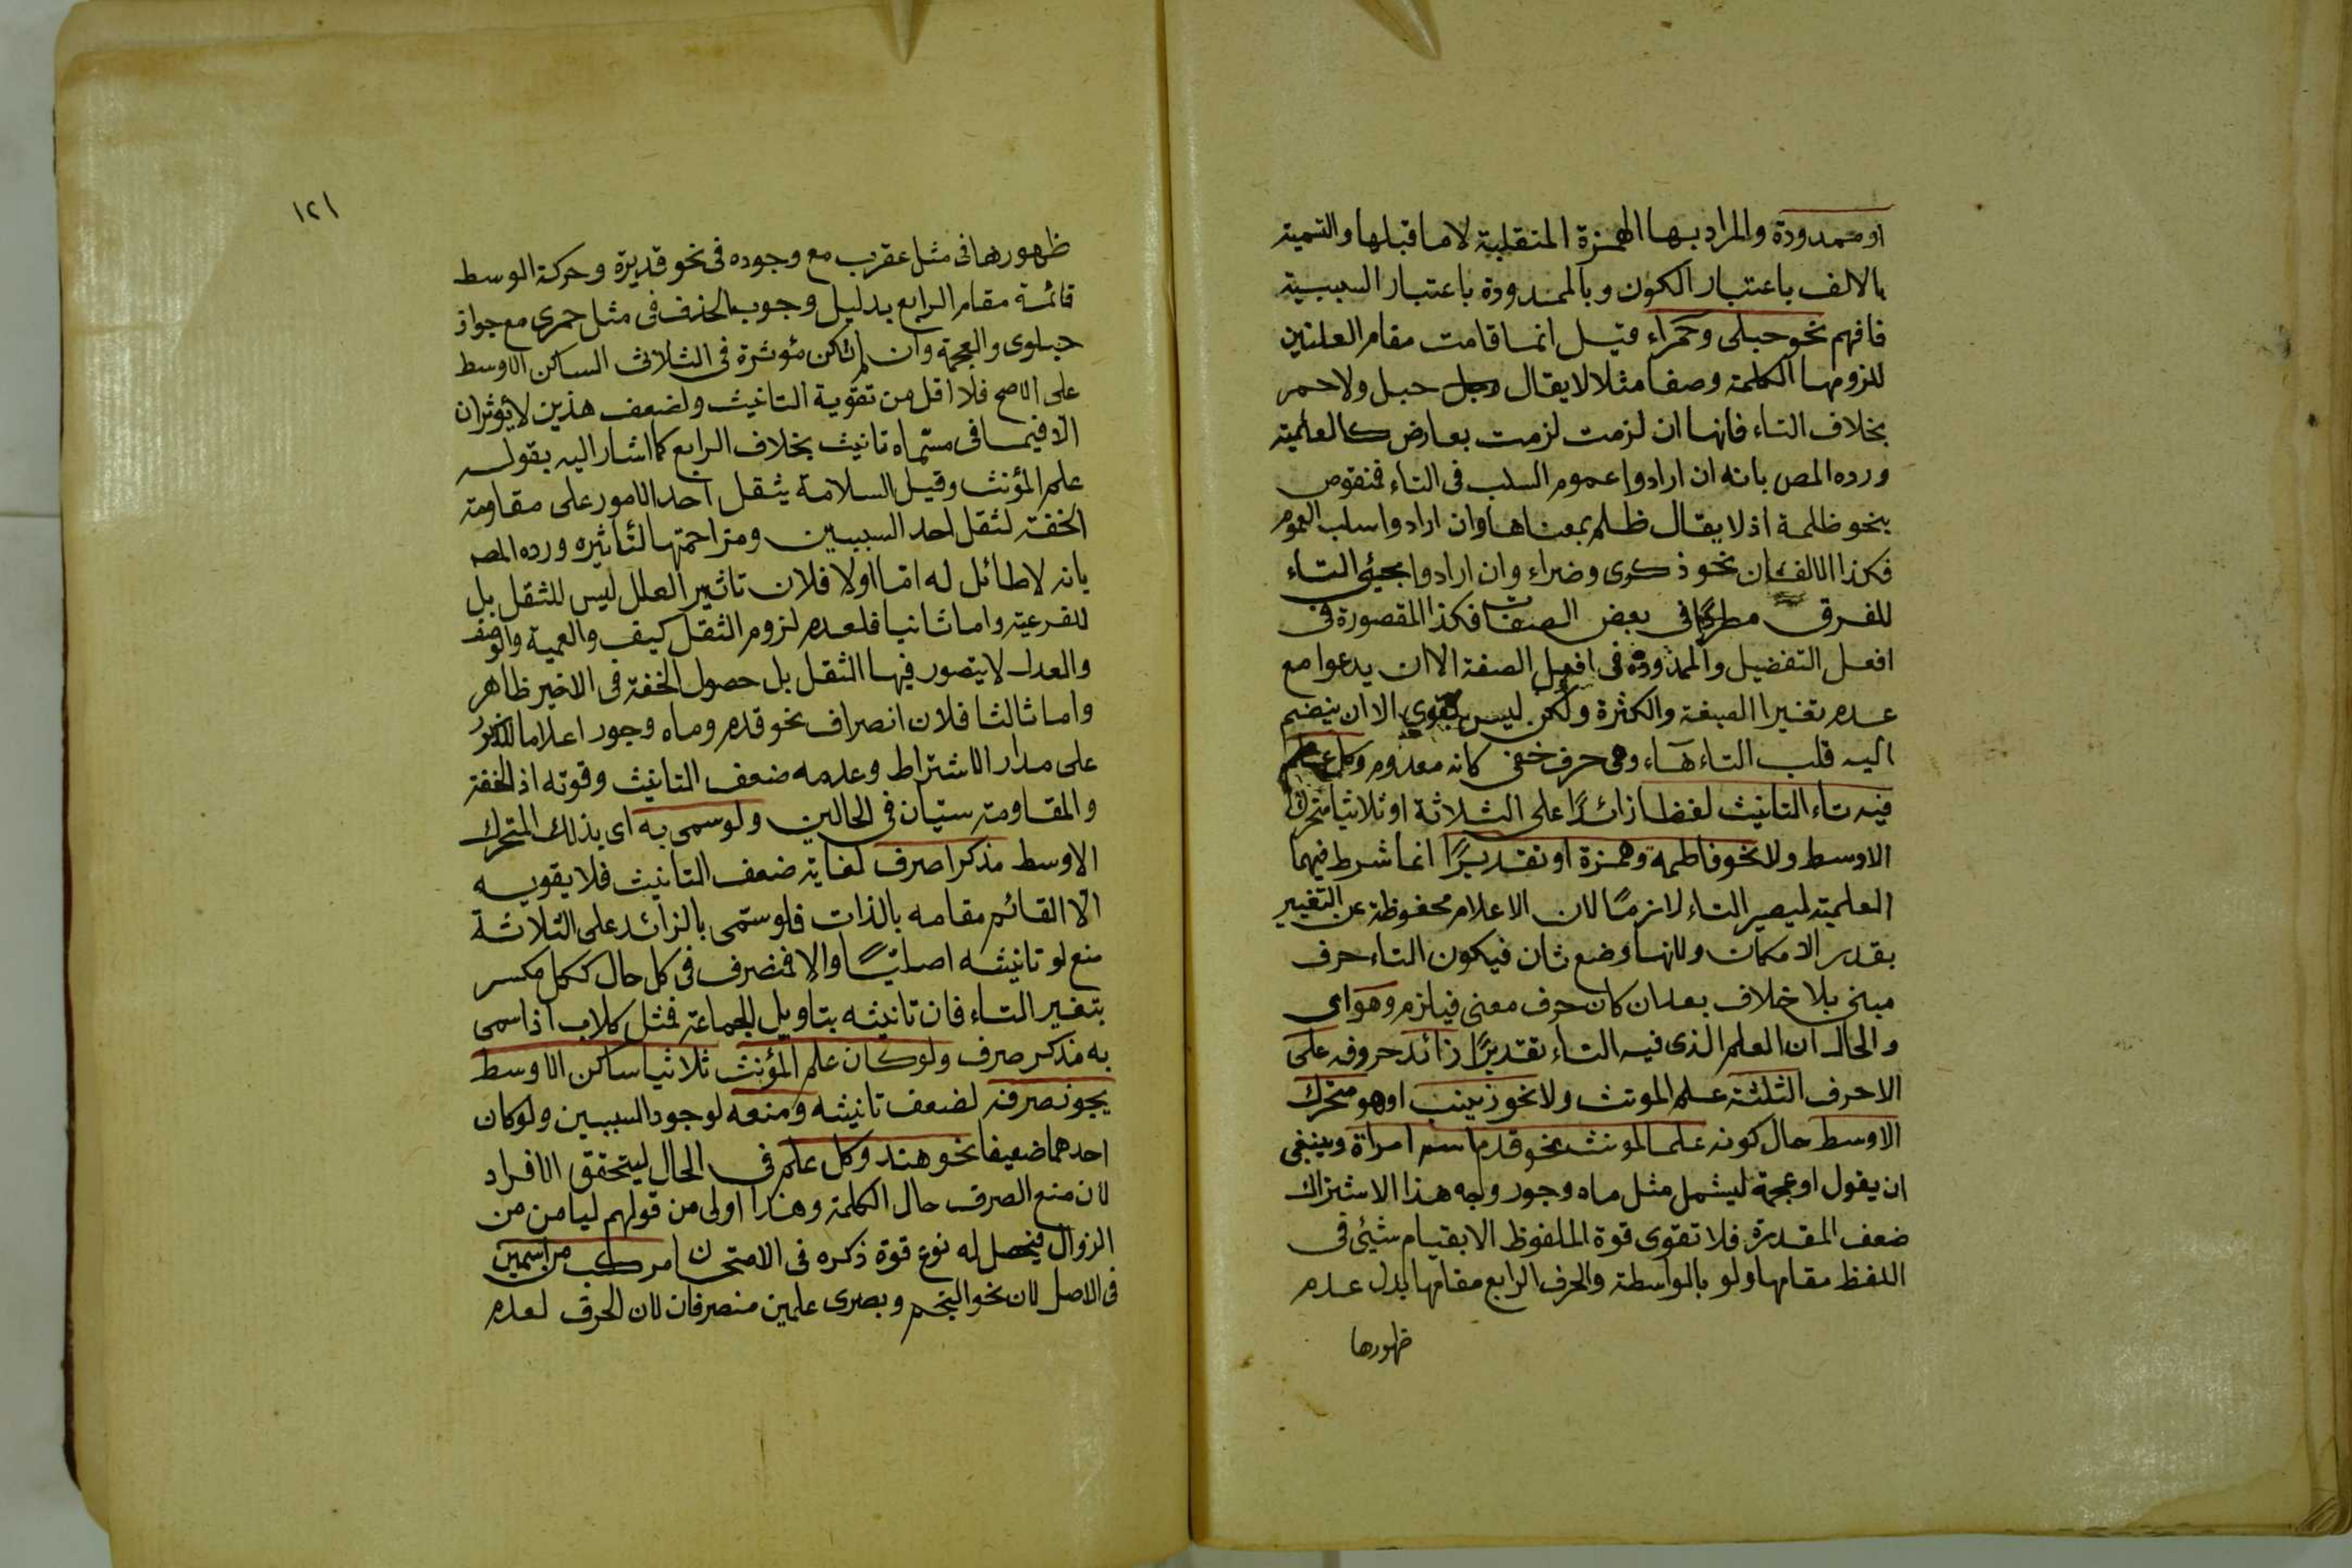 او ممدودة والمراد بها الهمزة المنقلبة لا ما قبلها والتسمية
بالالف باعتبار الكون وبالممدودة باعتبار السببية
فافهم نحو حبلى وحمراء قيل انما قامت مقام العلتين
للزومها الكلمة وصفا مثلا لا يقال رجل حبل ولا حمر
بخلاف التاء فانها ان لزمت لزمت بعارض كالعلمية
ورده المص بانه ان ارادوا عموم السلب فى التاء فمنقوض
بنحو ظلمة اذ لا يقال ظلم بمعناها وان ارادوا سلب العموم
فكذا الالفان نحو ذكرى وضراء وان ارادوا مجئى التاء
للفرق مطردا فى بعض الصفات فكذا المقصورة فى
افعل التفضيل والممدودة فى افعل الصفة الا ان يدعوا مع
عدم تغييرا الصيغة والكثرة ولكن ليس بقوى الا ان ينضم
اليه قلب التاء هاء وهى حرف خفى كانه معدوم وكل علم
فيه تاء التانيث لفظا زائدًا على الثلاثة او ثلاثيا متحرك
الاوسط ولا نحو فاطمة وحمزة او تقديرًا انما شرط فيهما
العلمية ليصير التاء لازمًا لان الاعلام محفوظة عن التغيير
بقدر الامكان ولانها وضع ثان فيكون التاء حرف
مبنى بلا خلاف بعد ان كان حرف معنى فيلزم وهو اى
والحال ان العلم الذى فيه التاء تقديرًا زائد حروفه على
الاحرف الثلثة علم المونث ولا نحو زينب او هو متحرك
الاوسط حال كونه علما لمونث نحو قدم اسم امراة وينبغى
ان يقول او عجمة ليشمل مثل ماه وجور وجه هذا الاشتراك
ضعف المقدرة فلا تقوى قوة الملفوظ الا بقيام شيئى فى
اللفظ مقامها ولو بالواسطة والحرف الرابع مقامها بدل عدم
ظهورها
١٢١
ظهورها فى مثل عقرب مع وجوده فى نحو قديرة وحركة الوسط
قائمة مقام الرابع بدليل وجوب الحذف فى مثل جمرى مع جواز
حبلوى والعجمة وان لم تكن مؤثرة فى الثلاثى الساكن الاوسط
على الاصح فلا اقل من تقوية التانيث ولضعف هذين لا يؤثران
الا فيما فى مسماه تانيث بخلاف الرابع كما اشار اليه بقوله
علم المؤنث وقيل السلامة يثقل احد الامور على مقاومة
الخفة لثقل احد السببين ومزاحمتها لتاثيره ورده المص
بانه لا طائل له اما اولا فلان تاثير العلل ليس للثقل بل
للفرعية واما ثانيا فلعدم لزوم الثقل كيف والعمية والوصف
والعدل لا يتصور فيها الثقل بل حصول الخفة فى الاخير ظاهر
واما ثالثا فلان انصراف نحو قدم وماه وجور اعلاما للذكر
على مدار الاشتراط وعدمه ضعف التانيث وقوته اذ الخفة
والمقاومة سيان فى الحالين ولو سمى به اى بذلك المتحرك
الاوسط مذكرا صرف لغاية ضعف التانيث فلا يقويه
الا القائم مقامه بالذات فلو سمى بالزائد على الثلاثة
منع لو تانيثه اصليًا والا فمنصرف فى كل حال ككل مكسر
بتغير التاء فان تانيثه بتاويل الجماعة فمثل كلاب اذا سمى
به مذكر صرف ولو كان علم المؤنث ثلاثيا ساكن الاوسط
يجوز صرفه لضعف تانيثه ومنعه لوجود السببين ولو كان
احدهما ضعيفا نحو هند وكل علم فى الحال ليتحقق الافراد
لان منع الصرف حال الكلمة وهذا اولى من قولهم ليامن من
الزوال فيحصل له نوع قوة ذكره فى الامتحان مركب من اسمين
فى الاصل لان نحو النجم وبصرى علمين منصرفان لان الحرف لعدم